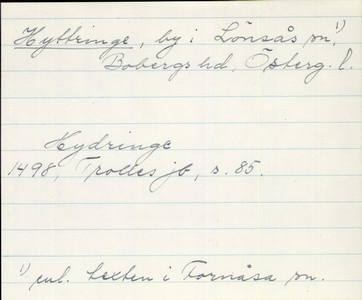 Hyttringe, by i Lönsås sn 1),
Bobergs hd, Österg. l.
Hydringe
1498, Trolles jb, s. 85.
1) enl. texten i Fornåsa sn.